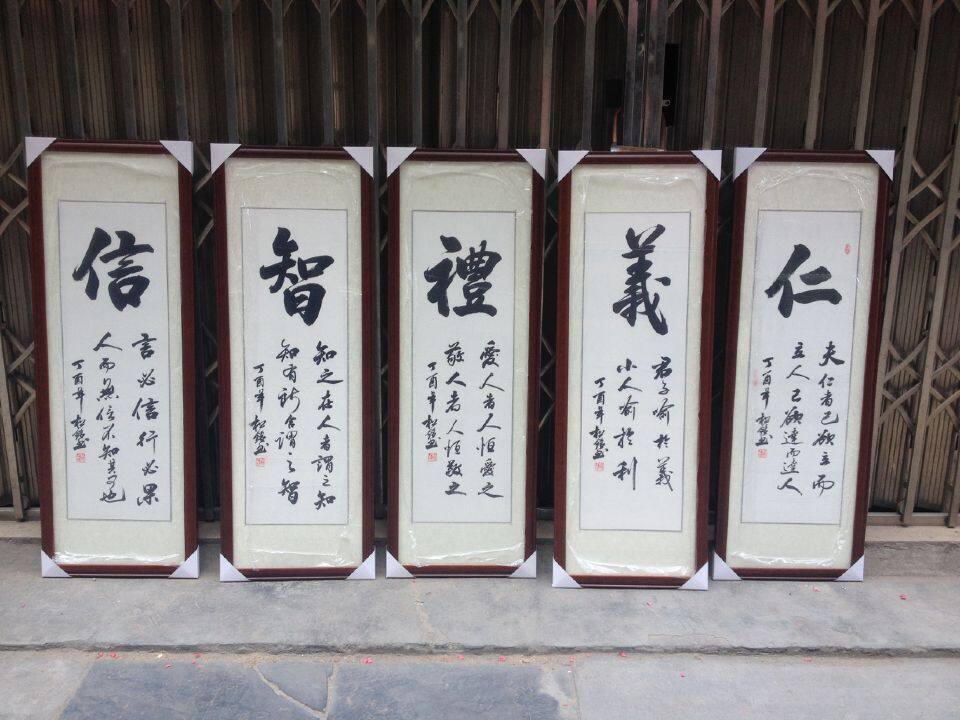 仁
夫仁者己欲立而
立人己欲達而達人
丁酉年松
義
君子喻於義
小人喻於利
丁酉年松
禮
愛人者人恒愛之
敬人者人恒敬之
丁酉年松
智
知之在人者謂之知
知有所合謂之智
丁酉年松
信
言必信行必果
人而無信不知其可也
丁酉年松